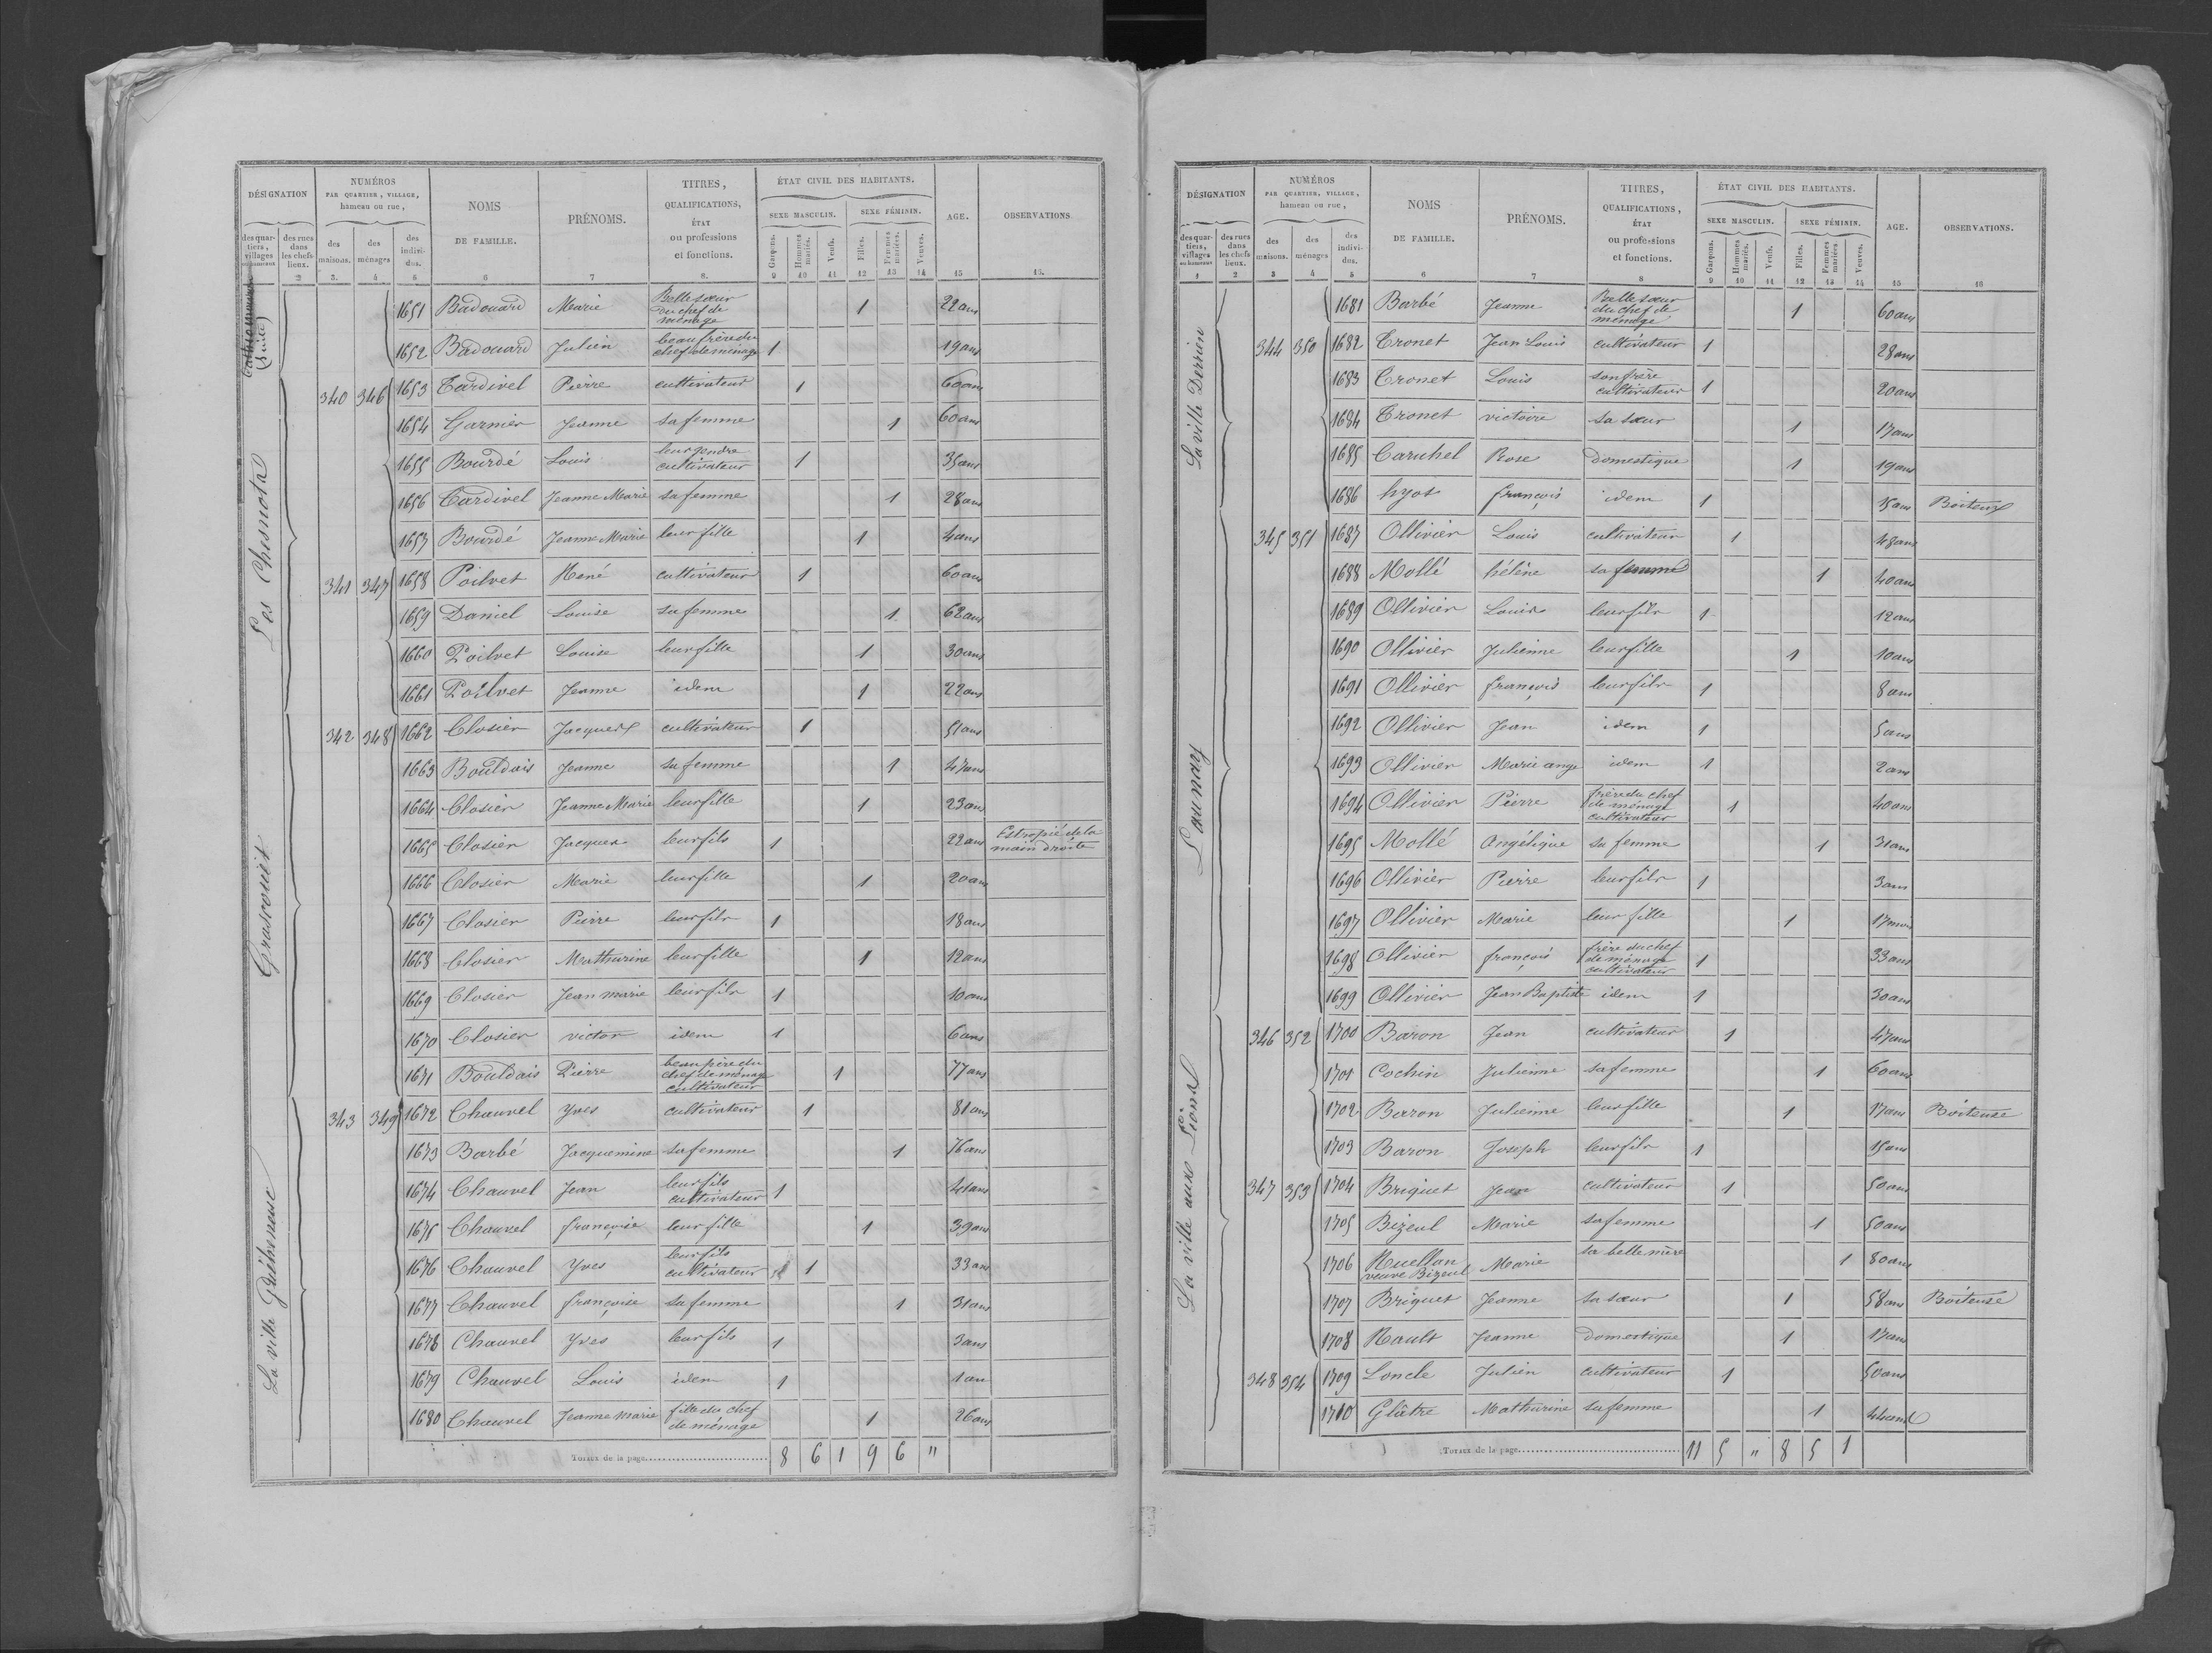 DÉSIGNATION
NUMÉROS
PAR QUARTIER, VILLAGE,
hameau ou rue,
NOMS
DE FAMILLE.
PRÉNOMS.
TITRES,
QUALIFICATIONS,
ÉTAT
ou professions
et fonctions.
ÉTAT CIVIL DES HABITANTS.
SEXE MASCULIN.
SEXE FÉMININ.
AGE.
OBSERVATIONS
des quartiers, villages ou hameaux
des rues dans les chefs-lieux.
des maisons.
des ménages
des individus.
Garçons.
Hommes mariés.
Veufs.
Filles.
Femmes mariées.
Veuves.
2 3. 4 5 6 7 8. 9 10 11 12 13 14 15 16.
(Suite)
1651 Badouard Marie Belle sœur du chef de ménage 1 22 ans
1652 Badouard Julien beau frère du chef de ménage 1 19 ans
Les Chesnots
340 346 1653 Tardivel Pierre cultivateur 1 60 ans
1654 Garnier Jeanne sa femme 1 60 ans
1655 Bourdé Louis leur gendre cultivateur 1 35 ans
1656 Tardivel Jeanne Marie sa femme 1 28 ans
1657 Bourdé Jeanne Marie leur fille 1 4 ans
341 347 1658 Poilvet René cultivateur 1 60 ans
1659 Daniel Louise sa femme 1 62 ans
1660 Poilvet Louise leur fille 1 30 ans
1661 Poilvet Jeanne idem 1 22 ans
342 348 1662 Closier Jacques cultivateur 1 51 ans
1663 Bouldais Jeanne sa femme 1 47 ans
1664 Closier Jeanne Marie leur fille 1 23 ans
1665 Closier Jacques leur fils 1 22 ans Estropié de la main droite
1666 Closier Marie leur fille 1 20 ans
1667 Closier Pierre leur fils 1 18 ans
1668 Closier Mathurine leur fille 1 12 ans
1669 Closier Jean marie leur fils 1 10 ans
1670 Closier victor idem 1 6 ans
1671 Bouldais Pierre beau père du chef de ménage cultivateur 1 77 ans
La ville
343 349 1672 Chauvel Yves cultivateur 1 81 ans
1673 Barbé Jacquemine sa femme 1 76 ans
1674 Chauvel Jean leur fils cultivateur 1 41 ans
1675 Chauvel françoise leur fille 1 39 ans
1676 Chauvel Yves leur fils cultivateur 1 33 ans
1677 Chauvel françoise sa femme 1 31 ans
1678 Chauvel Yves leur fils 1 3 ans
1679 Chauvel Louis idem 1 1 an
1680 Chauvel Jeanne marie fille du chef de ménage 1 26 ans
Totaux de la page 8 6 1 9 6 "
DÉSIGNATION
NUMÉROS
PAR QUARTIER, VILLAGE,
hameau ou rue,
NOMS
DE FAMILLE.
PRÉNOMS.
TITRES,
QUALIFICATIONS,
ÉTAT
ou professions
et fonctions.
ÉTAT CIVIL DES HABITANTS.
SEXE MASCULIN.
SEXE FÉMININ.
AGE.
OBSERVATIONS.
des quartiers, villages ou hameaux
des rues dans les chefs lieux.
des maisons.
des ménages
des individus.
Garçons.
Hommes mariés.
Veufs.
Filles.
Femmes mariées
Veuves.
1 2 3 4 5 6 7 8 9 10 11 12 13 14 15 16
La ville Derrien
1681 Barbé Jeanne Belle sœur du chef de ménage 1 60 ans
344 350 1682 Tronet Jean Louis cultivateur 1 28 ans
1683 Tronet Louis son frère cultivateur 1 20 ans
1684 Tronet victoire sa sœur 1 17 ans
1685 Caruhel Rose domestique 1 19 ans
1686 hyot françois idem 1 15 ans Boiteux
Launay
345 351 1687 Ollivier Louis cultivateur 1 48 ans
1688 Mollé hélène sa femme 1 40 ans
1689 Ollivier Louis leur fils 1 12 ans
1690 Ollivier Julienne leur fille 1 10 ans
1691 Ollivier françois leur fils 1 8 ans
1692 Ollivier Jean idem 1 5 ans
1693 Ollivier Marie ange idem 1 2 ans
1694 Ollivier Pierre frère du chef de ménage cultivateur 1 40 ans
1695 Mollé Angélique sa femme 1 31 ans
1696 Ollivier Pierre leur fils 1 3 ans
1697 Ollivier Marie leur fille 1 17 mois
1698 Ollivier françois frère du chef de ménage cultivateur 1 33 ans
1699 Ollivier Jean Baptiste idem 1 30 ans
La ville aux
346 352 1700 Baron Jean cultivateur 1 47 ans
1701 Cochin Julienne sa femme 1 60 ans
1702 Baron Julienne leur fille 1 17 ans Boiteuse
1703 Baron Joseph leur fils 1 15 ans
347 353 1704 Briquet Jean cultivateur 1 50 ans
1705 Bizeul Marie sa femme 1 50 ans
1706 Ruellan veuve Bizeul Marie sa belle mère 1 80 ans
1707 Briquet Jeanne sa sœur 1 58 ans Boiteuse
1708 Rault Jeanne domestique 1 17 ans
348 354 1709 Loncle Julien cultivateur 1 50 ans
1710 Glâtre Mathurine sa femme 1 44 ans
Totaux de la page 11 5 " 8 5 1